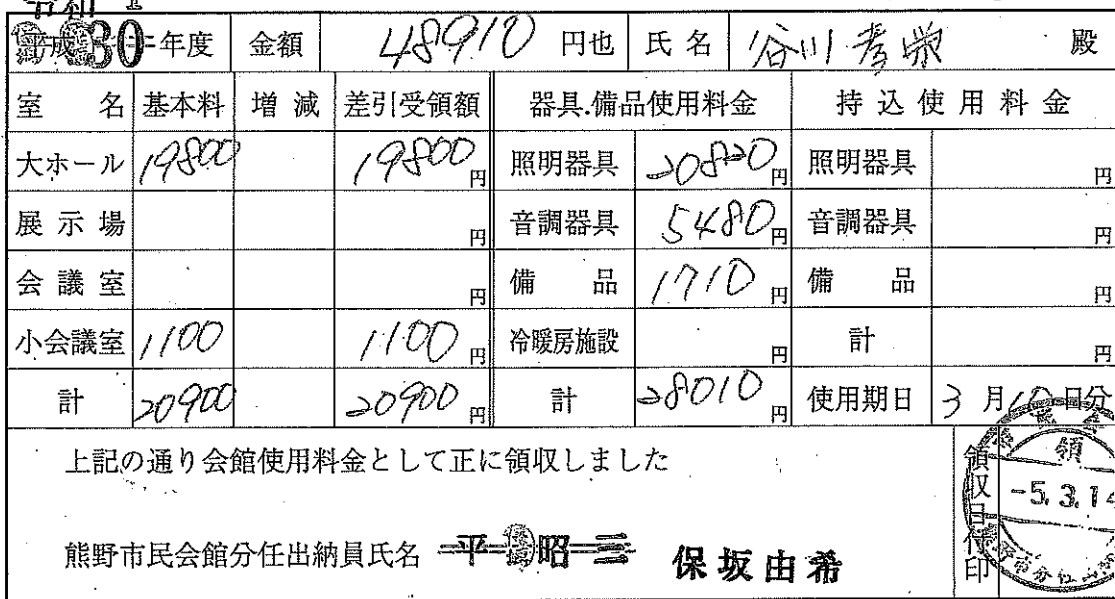 令和
平成30年度 金額 48910 円也 氏名 谷川孝栄 殿
室名 基本料 増減 差引受領額 器具.備品使用料金 持込使用料金
大ホール 19800 19800円 照明器具 20820円 照明器具 円
展示場 円 音調器具 5480円 音調器具 円
会議室 円 備品 1710円 備品 円
小会議室 1100 1100円 冷暖房施設 円 計 円
計 20900 20900円 計 28010円 使用期日 3月 日分
上記の通り会館使用料金として正に領収しました
領収日付印
領
-5.3.14
熊野市民会館分任出納員氏名 平 昭三 保坂由希